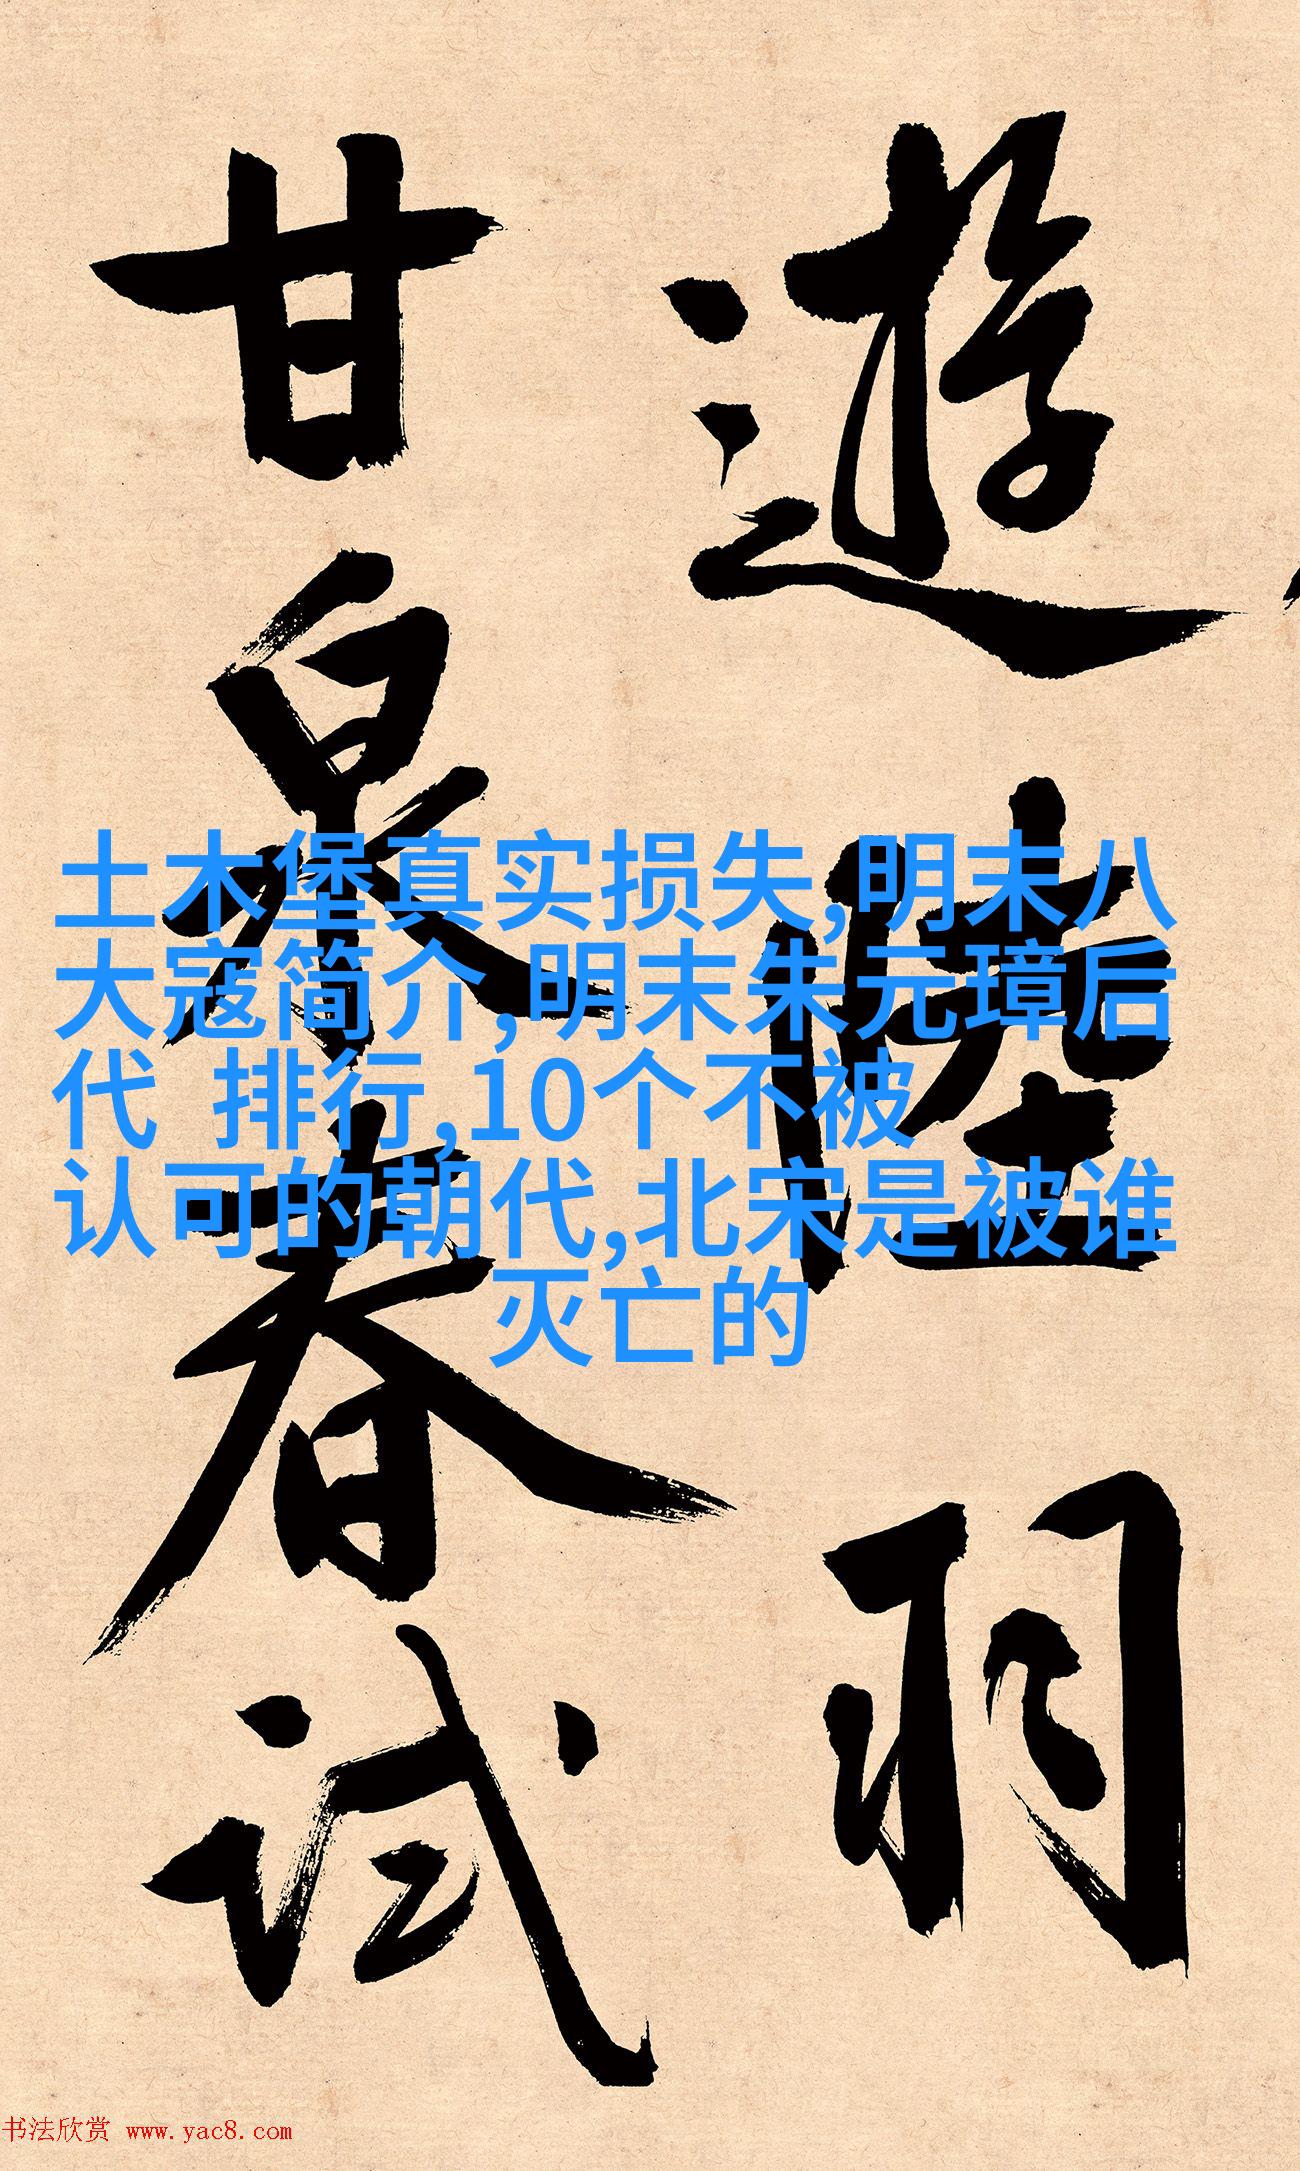 遊陸羽
甘泉春试
土木堡真实损失,明末八
大寇简介,明末朱元璋后
代 排行,10个不被
认可的朝代,北宋是被谁
灭亡的
书法欣赏 www.yac8.com